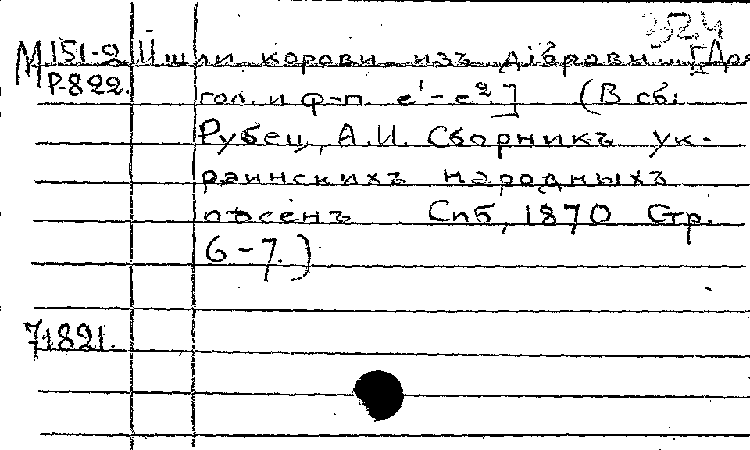 3524
М 151-2 Йшли корови изъ дiброви... [Для
Р-822. гол. и ф-п. e¹-e².] (В сб:
Рубец, А.И. Сборникъ ук-
раинскихъ народныхъ
пѣсенъ Спб, 1870 Стр.
6-7.)
71821.